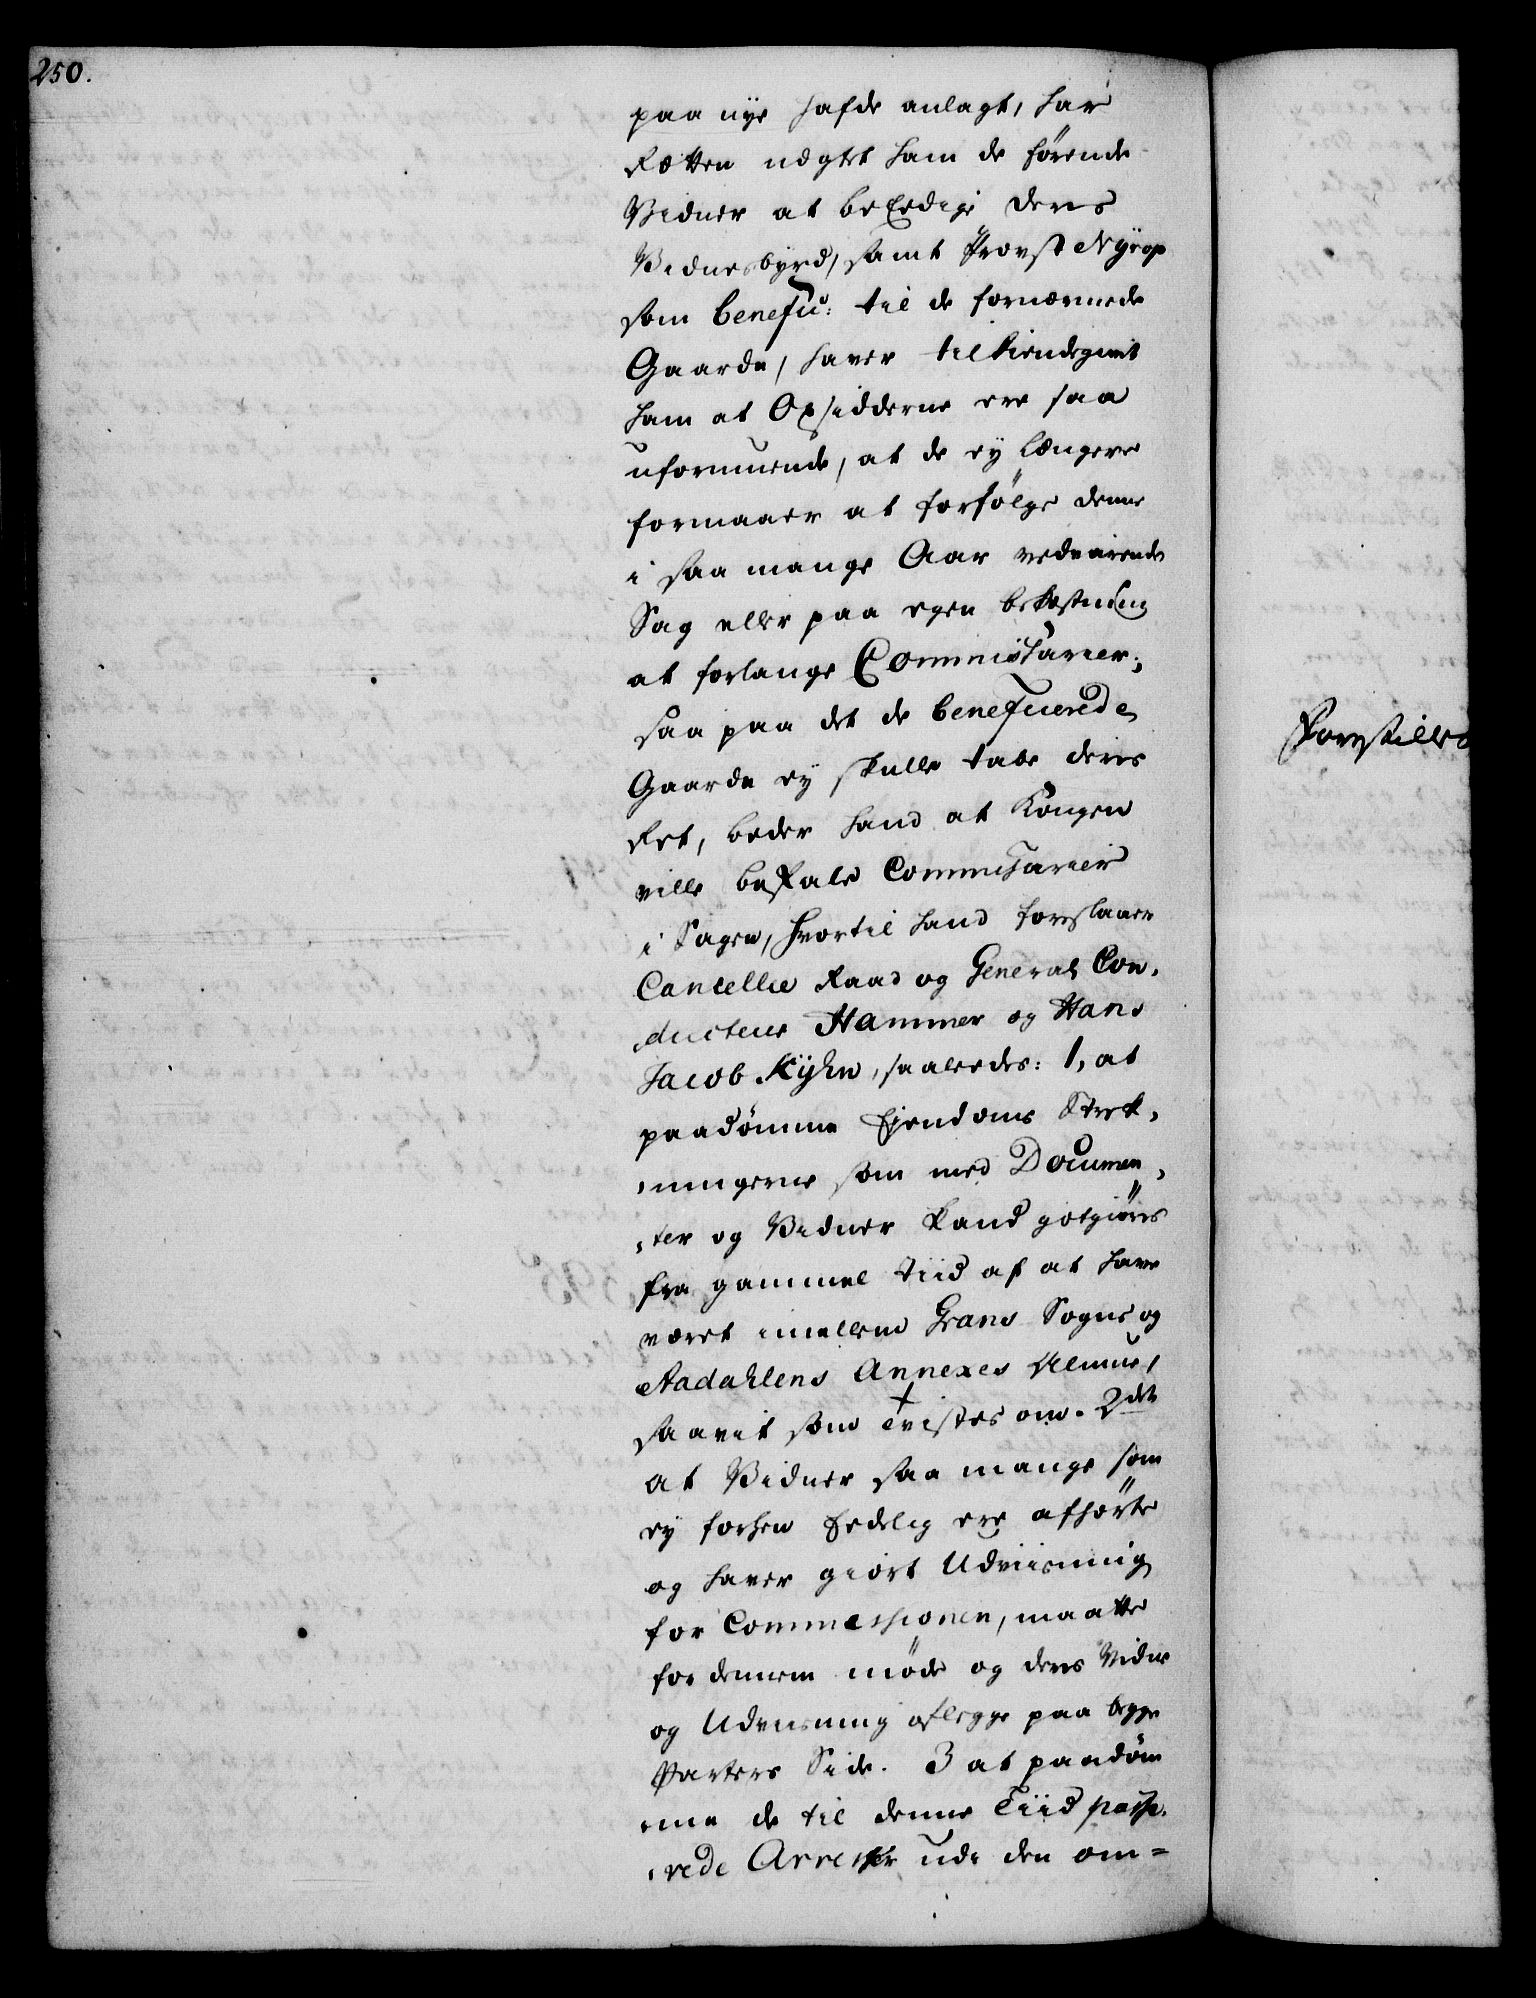 250.
paa nye hafde anlagt, har
Retten nægtet ham de førende
Vidner at beEedige deres
Vidnesbyrd, samt Provst Nyrop
som benefic: til de fornærmede
Gaarde, haver tilkiendegivet
ham at Opsidderne ere saa
uformuende, at de ey længere
formaaer at forfølge denne
i saa mange Aar vedvarende
Sag eller paa egen bekostning
at forlange Commissarier;
saa paa det de beneficerede
Gaarde ey skulle tabe deres
Ret, beder hand at Kongen
ville befale Commissarier
i Sagen, hvortil hand foreslaaer
Cancellie Raad og General Con-
ducteur Hammer og Hans
Jacob Kÿhn, saaledes: 1, at
paadømme Ejendoms Strek-
ningerne som med Documen-
ter og Vidner kand gotgiøres
fra gammel tiid af at have
været imellem Grans Sogns og
Aadahlens Annexes Almue,
saavit som tvistes om. 2det
at Vidner saa mange som
ey forhen Eedelig ere afhørte
og haver giort Udviisning
for Commissionen, maatte
for dennem møde og deres Vidne
og Udviisning aflegge paa begge
Parters Side. 3 at paadøm
me de til denne Tiid passe-
rede Arrester udi den om=
Forestilles